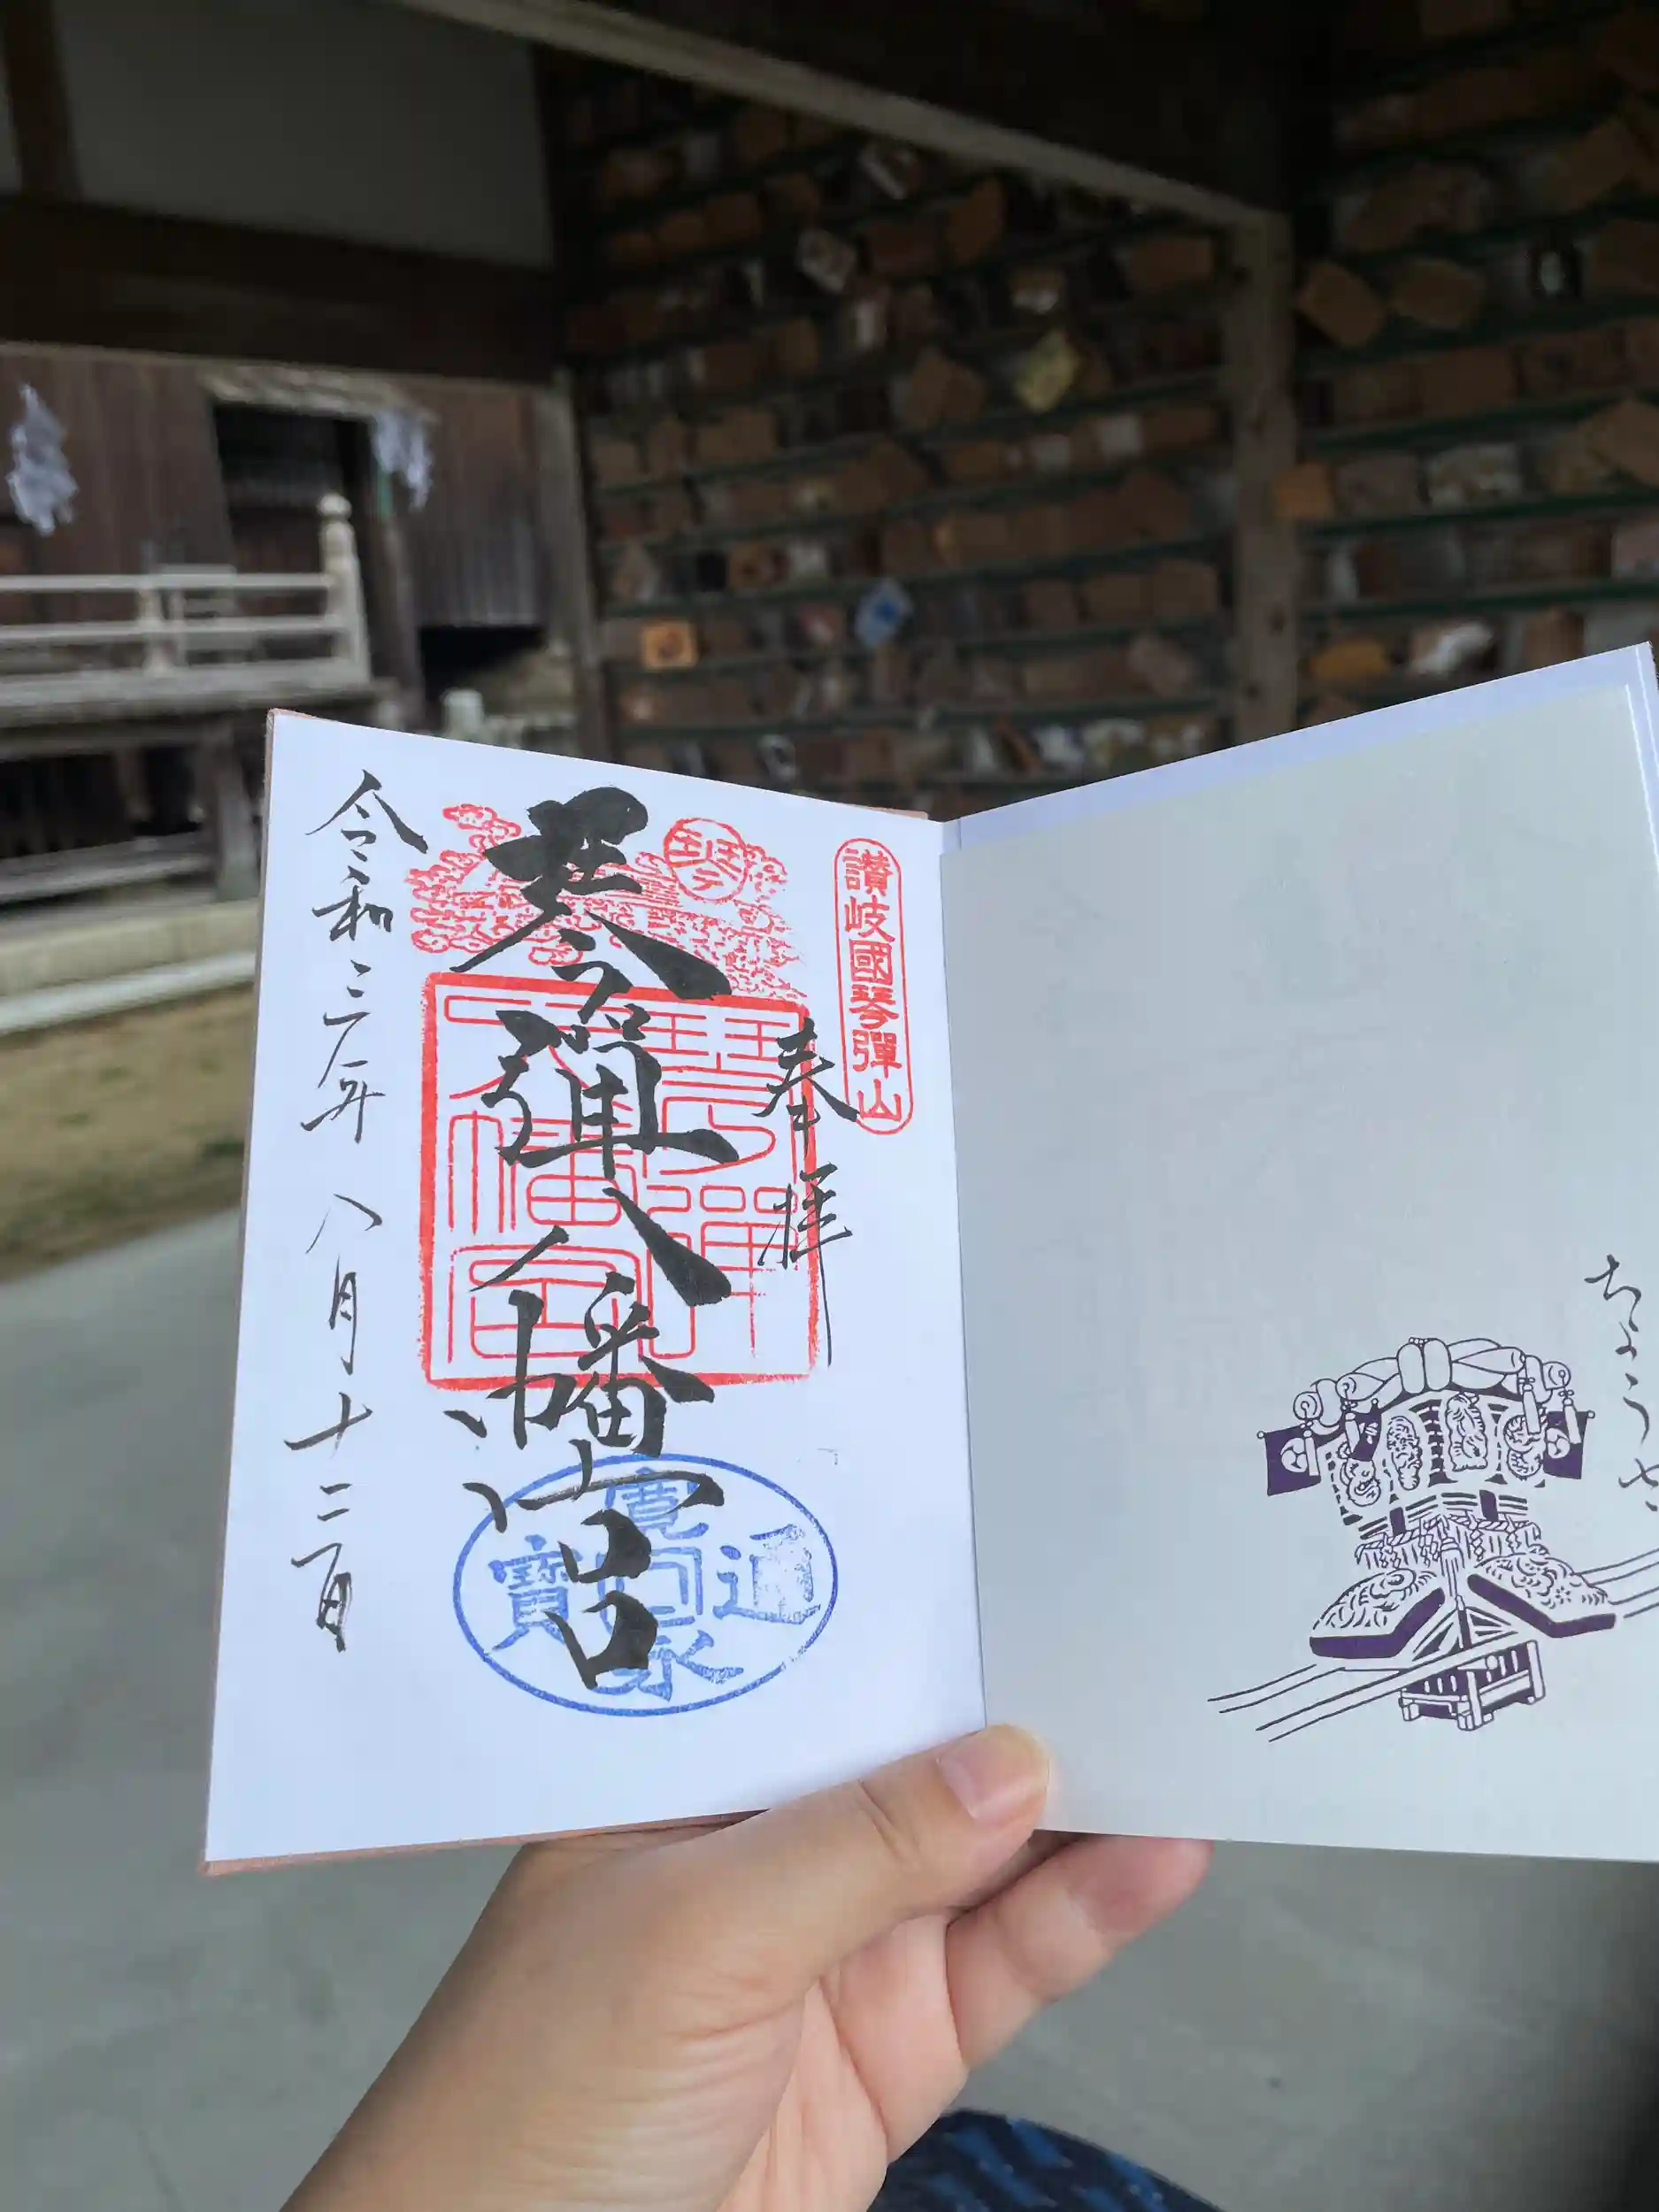 ちょうさ
讃岐國琴彈山
奉拝
琴
琴弾八幡宮
琴彈
八幡宮
寛永通寳
令和三年八月十二日